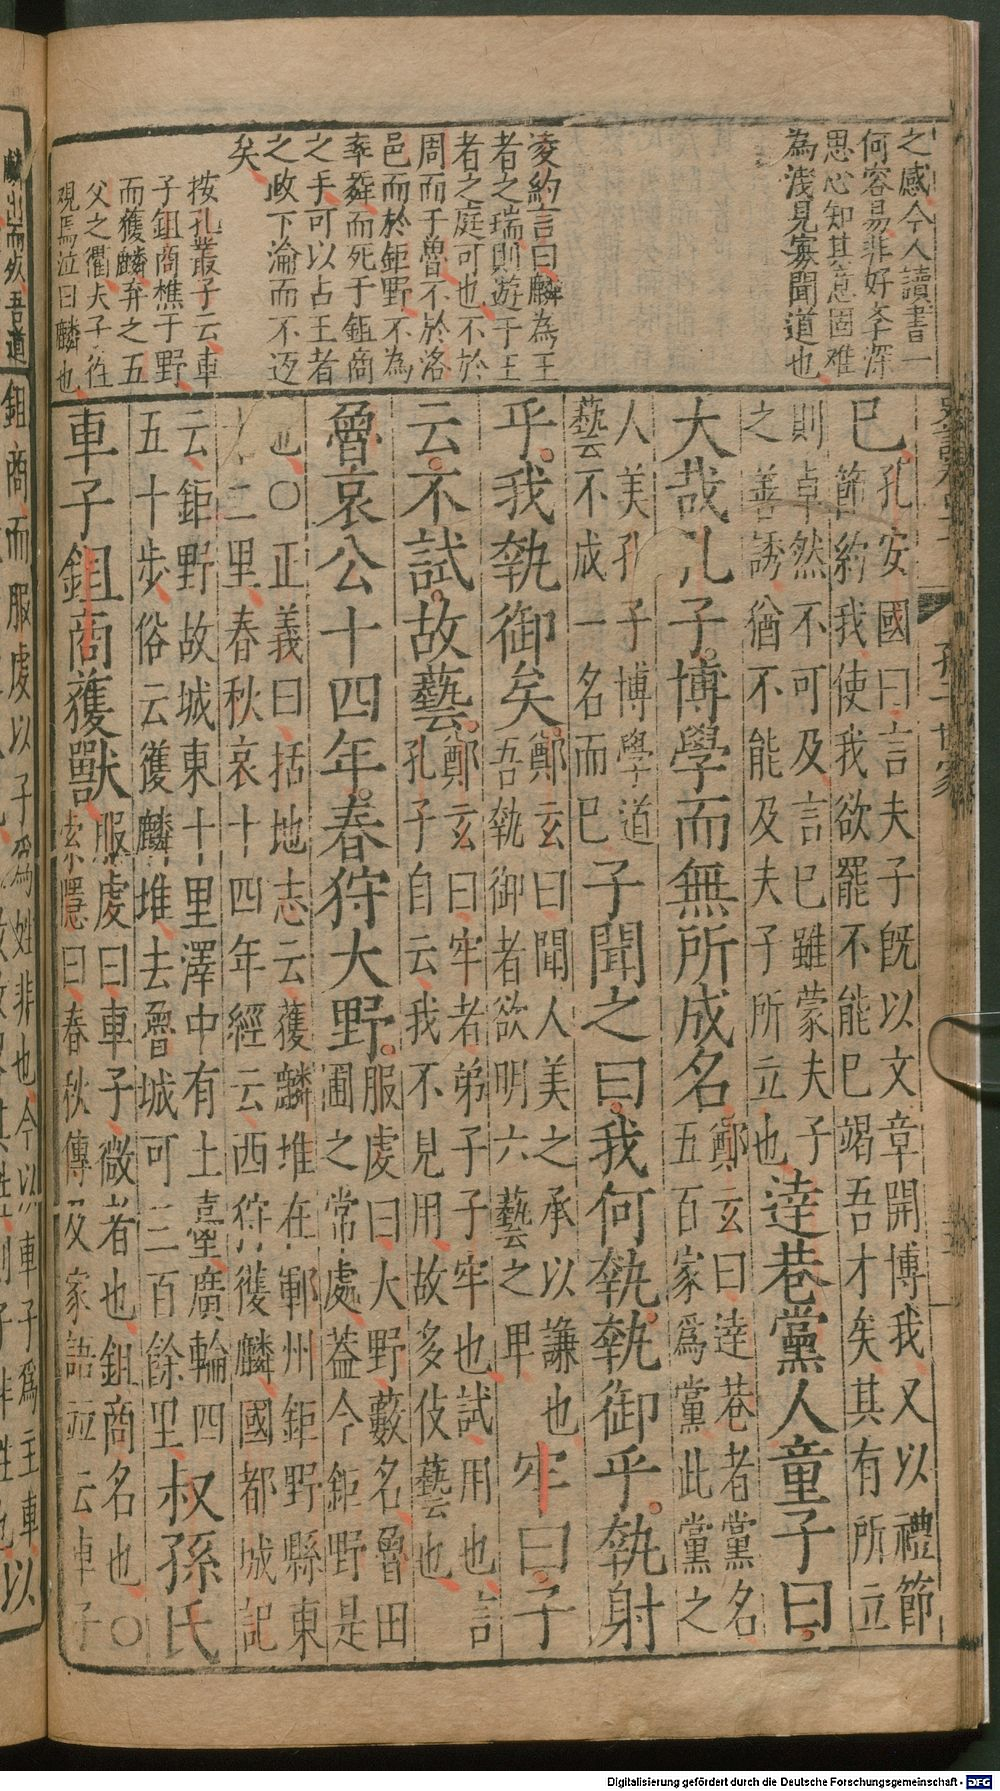 之感今人讀書一
何容易非好學深
思心知其意固难
為淺見寡聞道也
凌約言曰麟為王
者之瑞則遊于王
者之庭可也不於
周而于魯不於洛
邑而於鉅野不為
率舞而死于鉏商
之手可以占王者
之政下淪而不返
矣
按孔叢子云車
子鉏商樵于野
而獲麟弃之五
父之衢夫子往
視焉泣曰麟也
孔子世家
已孔安國曰言夫子既以文章開博我又以禮節
節約我使我欲罷不能已竭吾才矣其有所立
則卓然不可及言已雖蒙夫子
之善誘猶不能及夫子所立也達巷黨人童子曰
大哉孔子博學而無所成名鄭玄曰達巷者黨名
五百家爲黨此黨之
人美孔子博學道
藝不成一名而已子聞之曰我何執執御乎執射
乎我執御矣鄭玄曰聞人美之承以謙也
吾執御者欲明六藝之卑牢曰子
云不試故藝鄭玄曰牢者弟子子牢也試用也言
孔子自云我不見用故多伎藝也
魯哀公十四年春狩大野服虔曰大野藪名魯田
圃之常處葢今鉅野是
也○正義曰括地志云獲麟堆在鄆州鉅野縣東
十二里春秋哀十四年經云西狩獲麟國都城記
云鉅野故城東十里澤中有土臺廣輪四
五十步俗云獲麟堆去魯城可三百餘里叔孫氏
車子鉏商獲獸服虔曰車子微者也鉏商名也○
索隱曰春秋傳及家語並云車子
麟出而死吾道
鉏商而服虔以子爲姓非也今以車子爲主車以
Digitalisierung gefördert durch die Deutsche Forschungsgemeinschaft - DFG